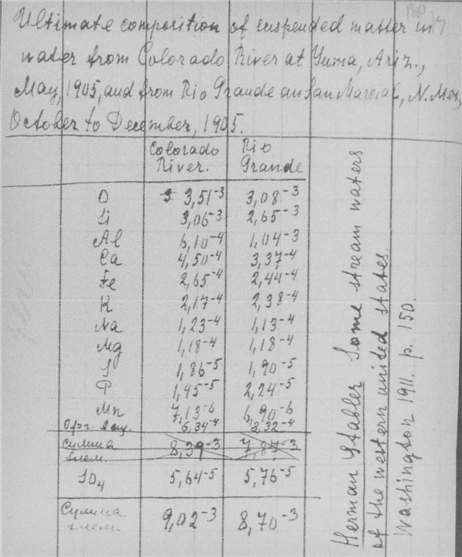 Ultimate composition of suspended matter in
water from Colorado River at Yuma, Ariz.,
May, 1905, and from Rio Grande an San Marcial, N. Mex,
October to December, 1905.
Colorado River. Rio Grande
O 3,51⁻³ 3,08⁻³
Si 3,06⁻³ 2,65⁻³
Al 6,10⁻⁴ 1,04⁻³
Ca 4,50⁻⁴ 3,37⁻⁴
Fe 2,65⁻⁴ 2,44⁻⁴
K 2,17⁻⁴ 2,38⁻⁴
Na 1,23⁻⁴ 1,13⁻⁴
Mg 1,18⁻⁴ 1,18⁻⁴
S 1,86⁻⁵ 1,90⁻⁵
P 1,45⁻⁵ 2,24⁻⁵
Mn 7,13⁻⁶ 6,90⁻⁶
Орг. вещ. 6,34⁻⁴ 8,32⁻⁴
Сумма 8,39⁻³ 7,87⁻³
элем.
SO₄ 5,64⁻⁵ 5,76⁻⁵
Сумма 9,02⁻³ 8,70⁻³
элем.
Herman Stabler Some stream waters
of the western united states.
Washington 1911. p. 150.